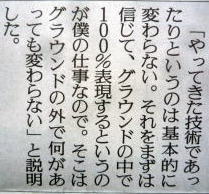 「やってきた技術であっ
たりというのは基本的に
変わらない。それをまずは
信じて、グラウンドの中で
100％表現するというの
が僕の仕事なので。そこは
グラウンドの外で何があ
っても変わらない」と説明
した。